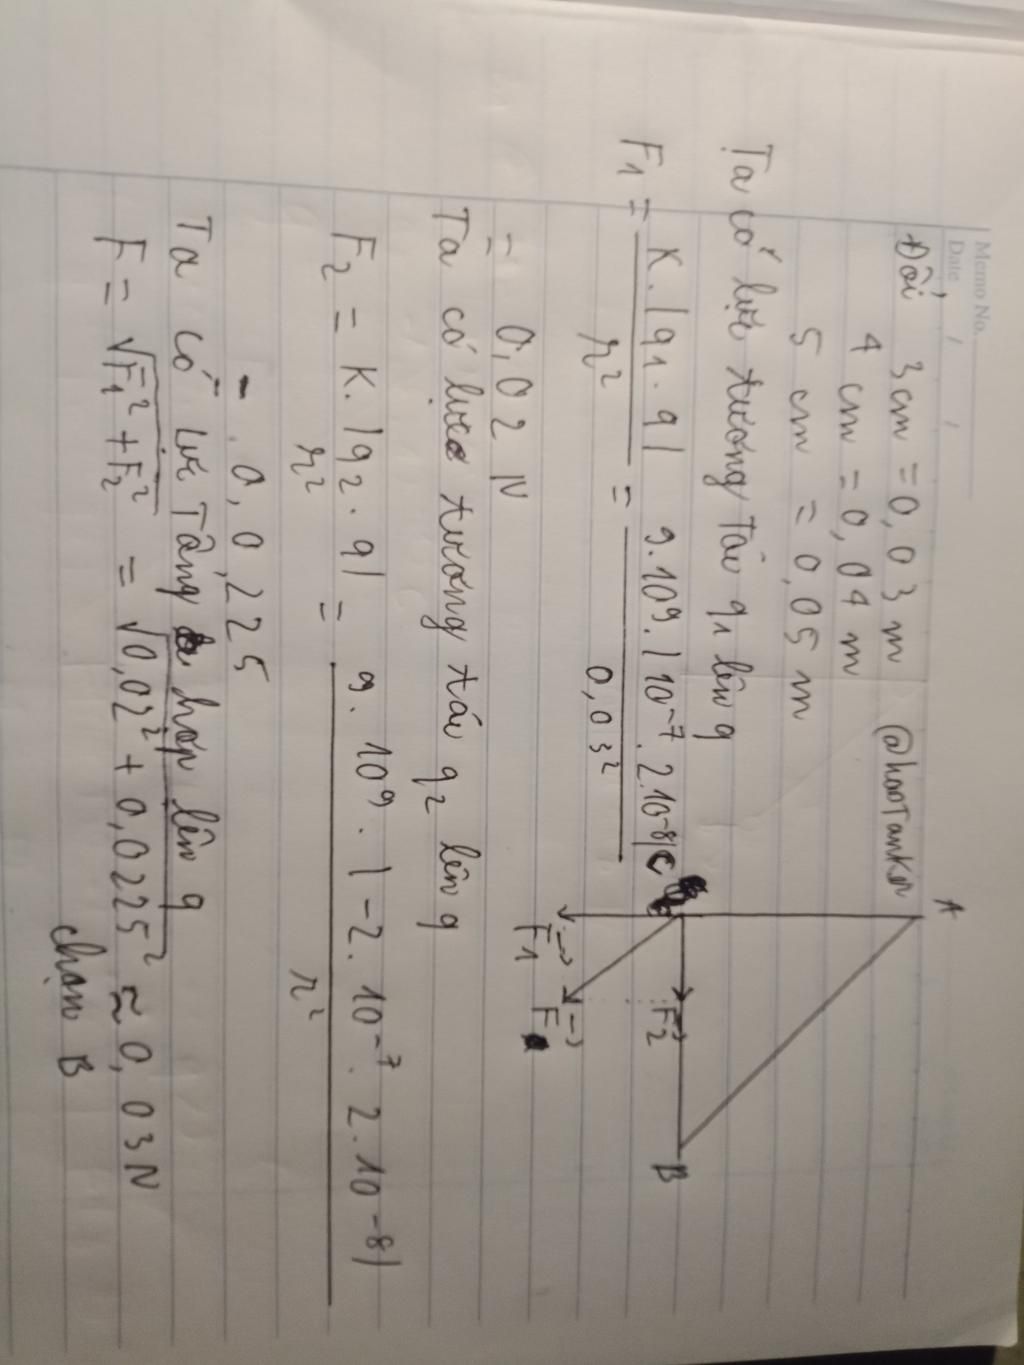 Memo No.
Date / /
Đổi 3cm = 0,03 m @haoTankn A
4 cm = 0,04 m
5 cm = 0,05 m
Ta có lực tương tác q1 lên q
F1 = K.|q1.q| / r² = 9.10⁹.|10⁻⁷.2.10⁻⁸| / 0,03² C F2 B
= 0,02 N F1 F
Ta có lực tương tác q2 lên q
F2 = K.|q2.q| / r² = 9.10⁹.|-2.10⁻⁷.2.10⁻⁸| / r²
= 0,0225
Ta có lực Tổng hợp lên q
F = √F1² + F2² = √0,02² + 0,0225² ≈ 0,03N
chọn B